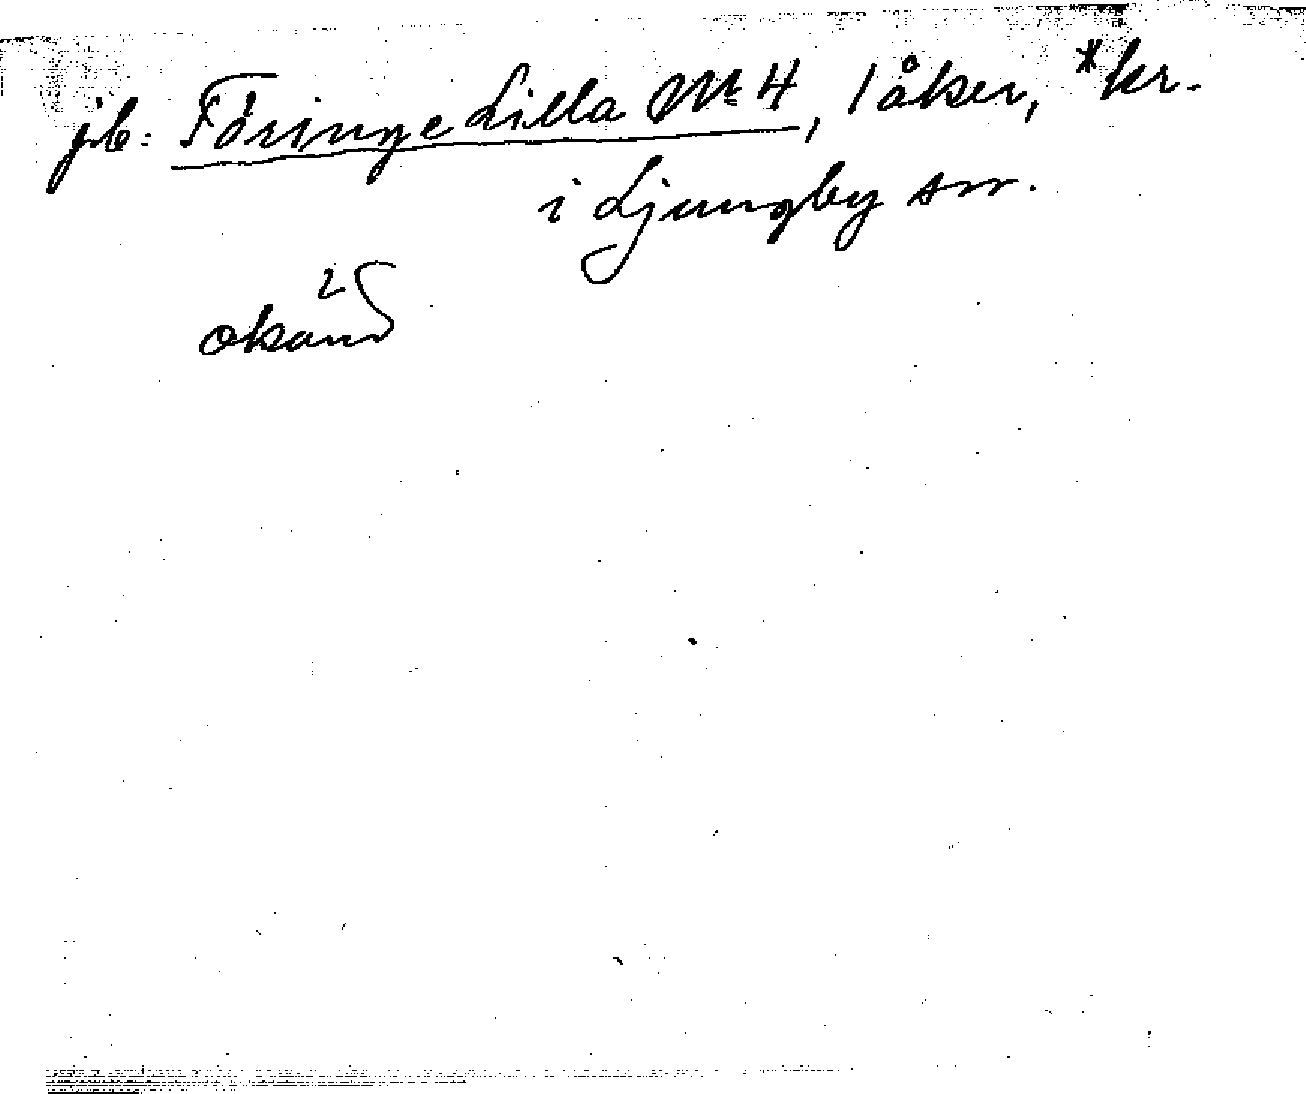 jb: Föringe Lilla No 4, 1 åker, *kr.
i Ljungby sn.
okänd